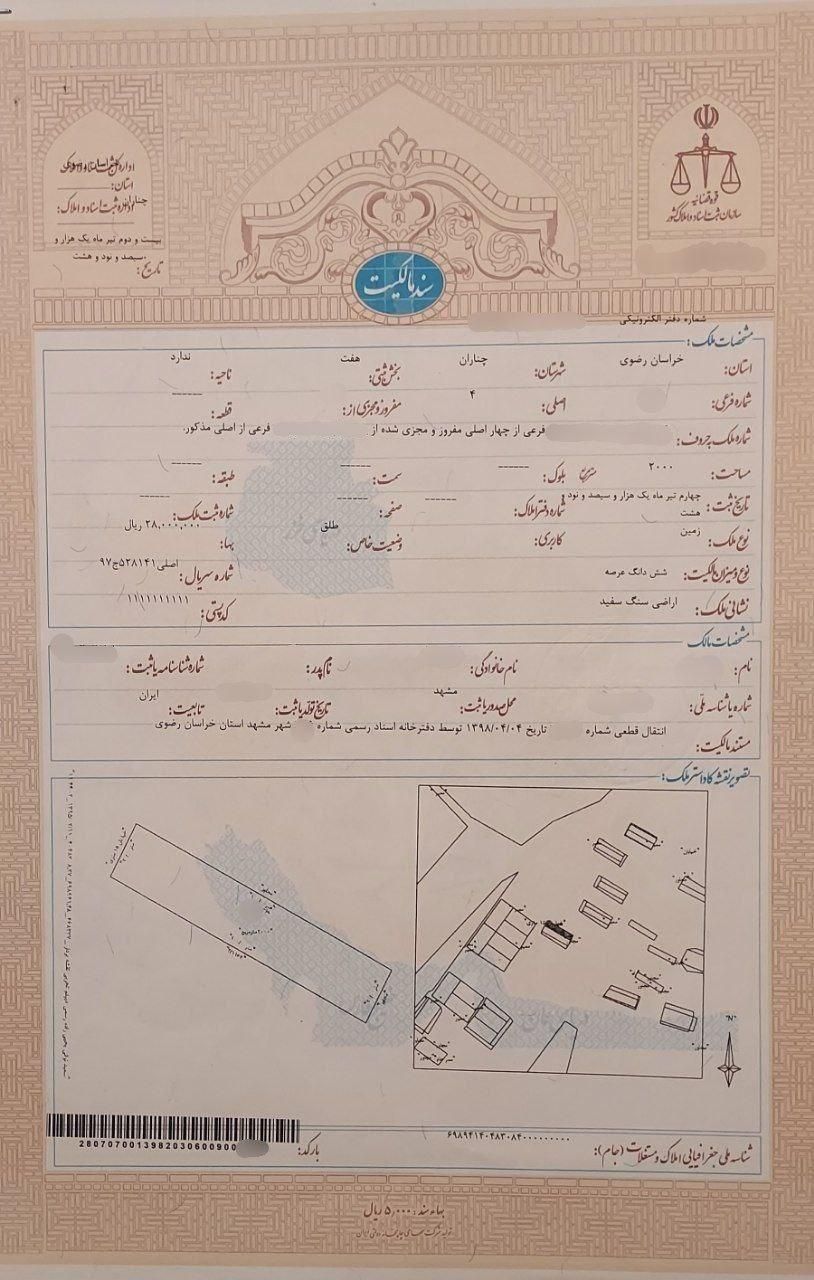 قوه قضائیه
سازمان ثبت اسناد و املاک کشور
استان:
چناران
اداره ثبت اسناد و املاک:
بیست و دوم تیر ماه یک هزار و
سیصد و نود و هشت
تاریخ:
سند مالکیت
شماره دفتر الکترونیکی
مشخصات ملک:
استان: خراسان رضوی شهرستان: چناران بخش ثبتی: هفت ناحیه: ندارد
شماره فرعی: اصلی: ۴ مفروز و مجزی از: قطعه: ------
شماره ملک به حروف: فرعی از چهار اصلی مفروز و مجزی شده از فرعی از اصلی مذکور.
مساحت: ۲۰۰۰ متر مربع بلوک: ------ سمت: ------ طبقه: ------
تاریخ ثبت: چهارم تیر ماه یک هزار و سیصد و نود و هشت شماره دفتر املاک: ------ صفحه: ------ شماره ثبت ملک: ------
نوع ملک: زمین کاربری: وضعیت خاص: طلق بها: ۲۸,۰۰۰,۰۰۰ ریال
نوع و میزان مالکیت: شش دانگ عرصه شماره سریال: اصلی ۵۲۸۱۴۱ج۹۷
نشانی ملک: اراضی سنگ سفید کد پستی: ۱۱۱۱۱۱۱۱۱۱
مشخصات مالک
نام: نام خانوادگی: نام پدر: شماره شناسنامه یا ثبت:
شماره یا شناسه ملی: محل صدور یا ثبت: مشهد تاریخ تولد یا ثبت: تابعیت: ایران
مستند مالکیت: انتقال قطعی شماره تاریخ ۱۳۹۸/۰۴/۰۴ توسط دفترخانه اسناد رسمی شماره شهر مشهد استان خراسان رضوی
تصویر نقشه کاداستر ملک:
"N"
شناسه ملی جغرافیایی املاک و مستغلات (جام): ۶۹۸۹۴۱۴۰۴۸۳۰۸۴۰۰۰۰۰۰۰۰۰۰
بارکد:
2807070013982030600900
بهاء سند: ۵,۰۰۰ ریال